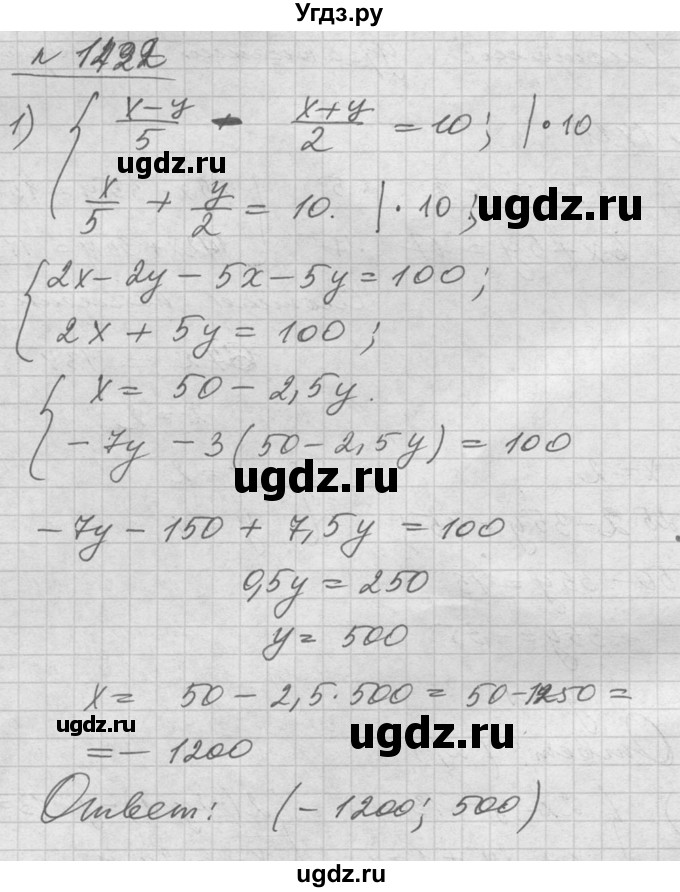 Угдз.ру
n 1422
1) { (x-y)/5 - (x+y)/2 = 10; |·10
ugdz.ru
x/5 + y/2 = 10. |·10;
ugdz.ru
{ 2x - 2y - 5x - 5y = 100;
2x + 5y = 100;
{ x = 50 - 2,5y.
-7y - 3(50 - 2,5y) = 100
ugdz.ru
-7y - 150 + 7,5y = 100
0,5y = 250
y = 500
x = 50 - 2,5·500 = 50-1250 =
ugdz.ru
ugdz.ru
= -1200
Ответ: (-1200; 500)
ugdz.ru